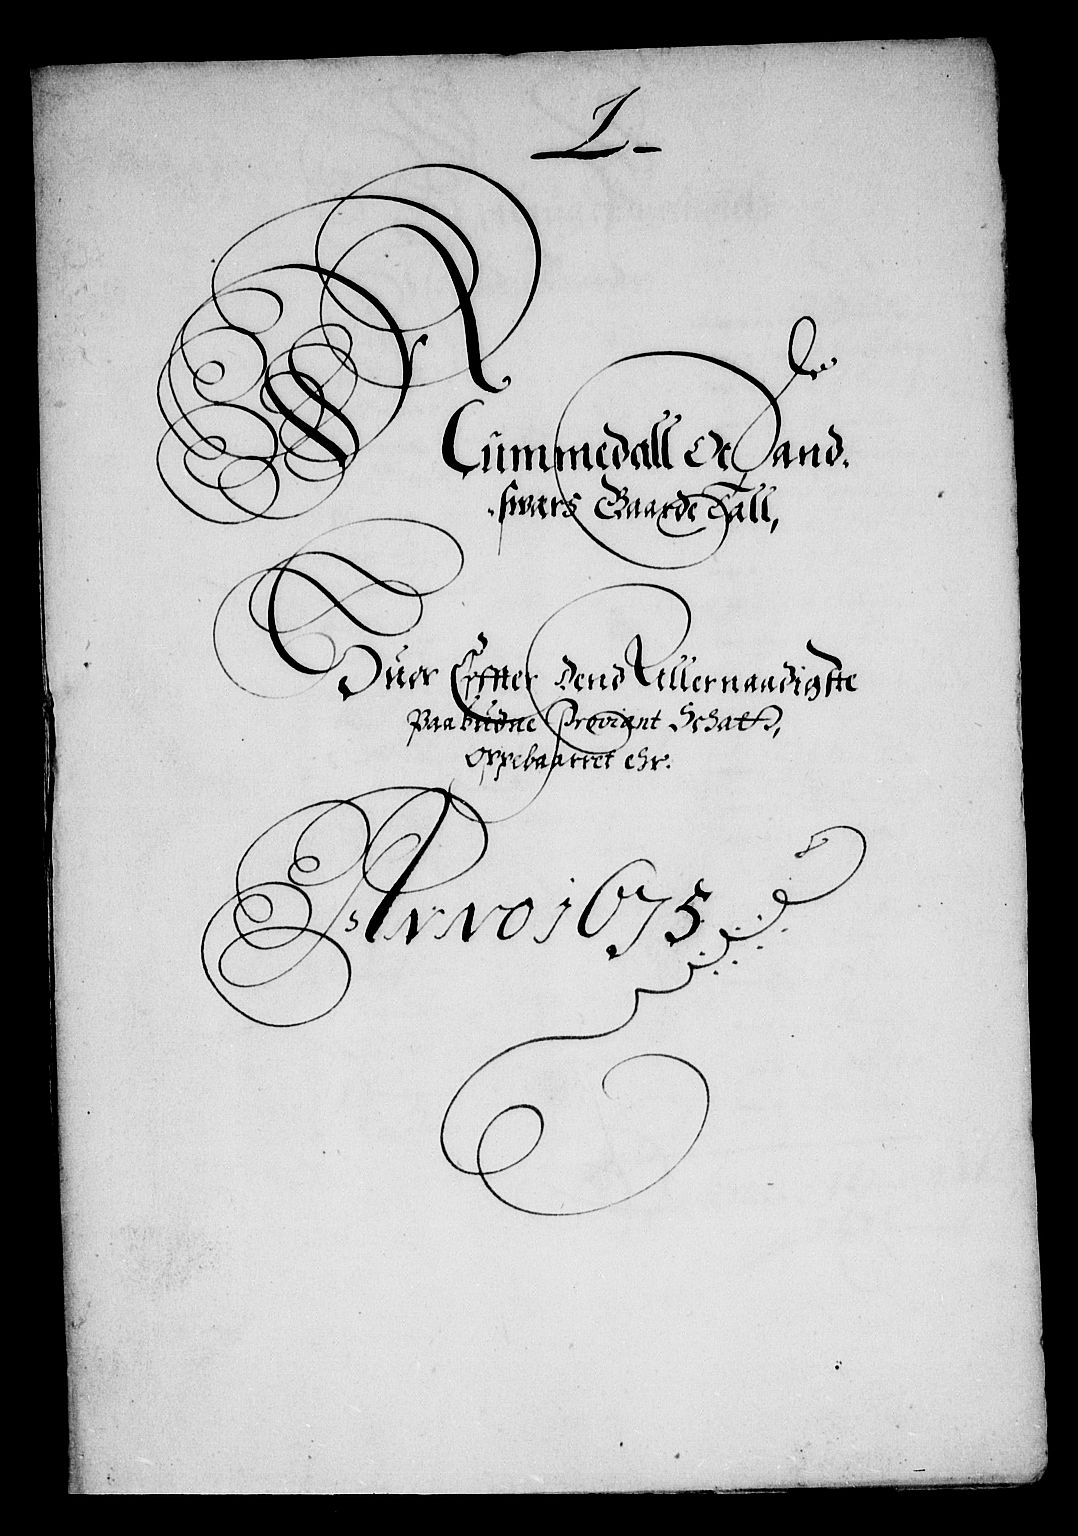 1-
Nümmedall Oc Sand-
swærs Gaarde Tall,
Hüor Effter Dend Allernaadigste
Paabüdne Proviant Schatt,
Oppebaarret ehr.
Anno 1675